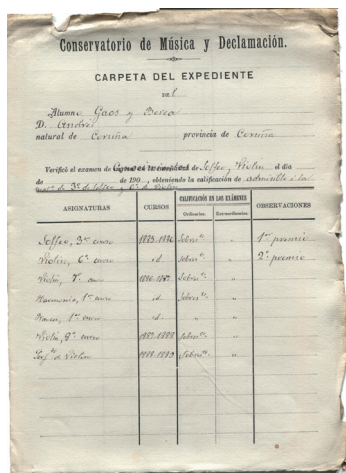 Conservatorio de Música y Declamación.
CARPETA DEL EXPEDIENTE
Alumno Gaos y Berea
D. Andrés
natural de Coruña provincia de Coruña
Verificó el examen de de Solfeo y Violin el día
de de 190 , obteniendo la calificación de admitido á la
de 3º de Solfeo y 6º de Violin
ASIGNATURAS CURSOS CALIFICACIÓN EN LOS EXÁMENES OBSERVACIONES
Ordinarios. Extraordinarios.
Solfeo, 3er curso 1885-1886 Sobres.te " 1er premio
Violin, 6º curso id. Sobres.te " 2º premio
Violin, 7º 1886-1887 Sobres.te "
Harmonia, 1er curso id. Sobres.te "
1er curso id. " "
Violin, 8º curso 1887-1888 Sobres.te "
de Violin 1888-1889 Sobres.te "